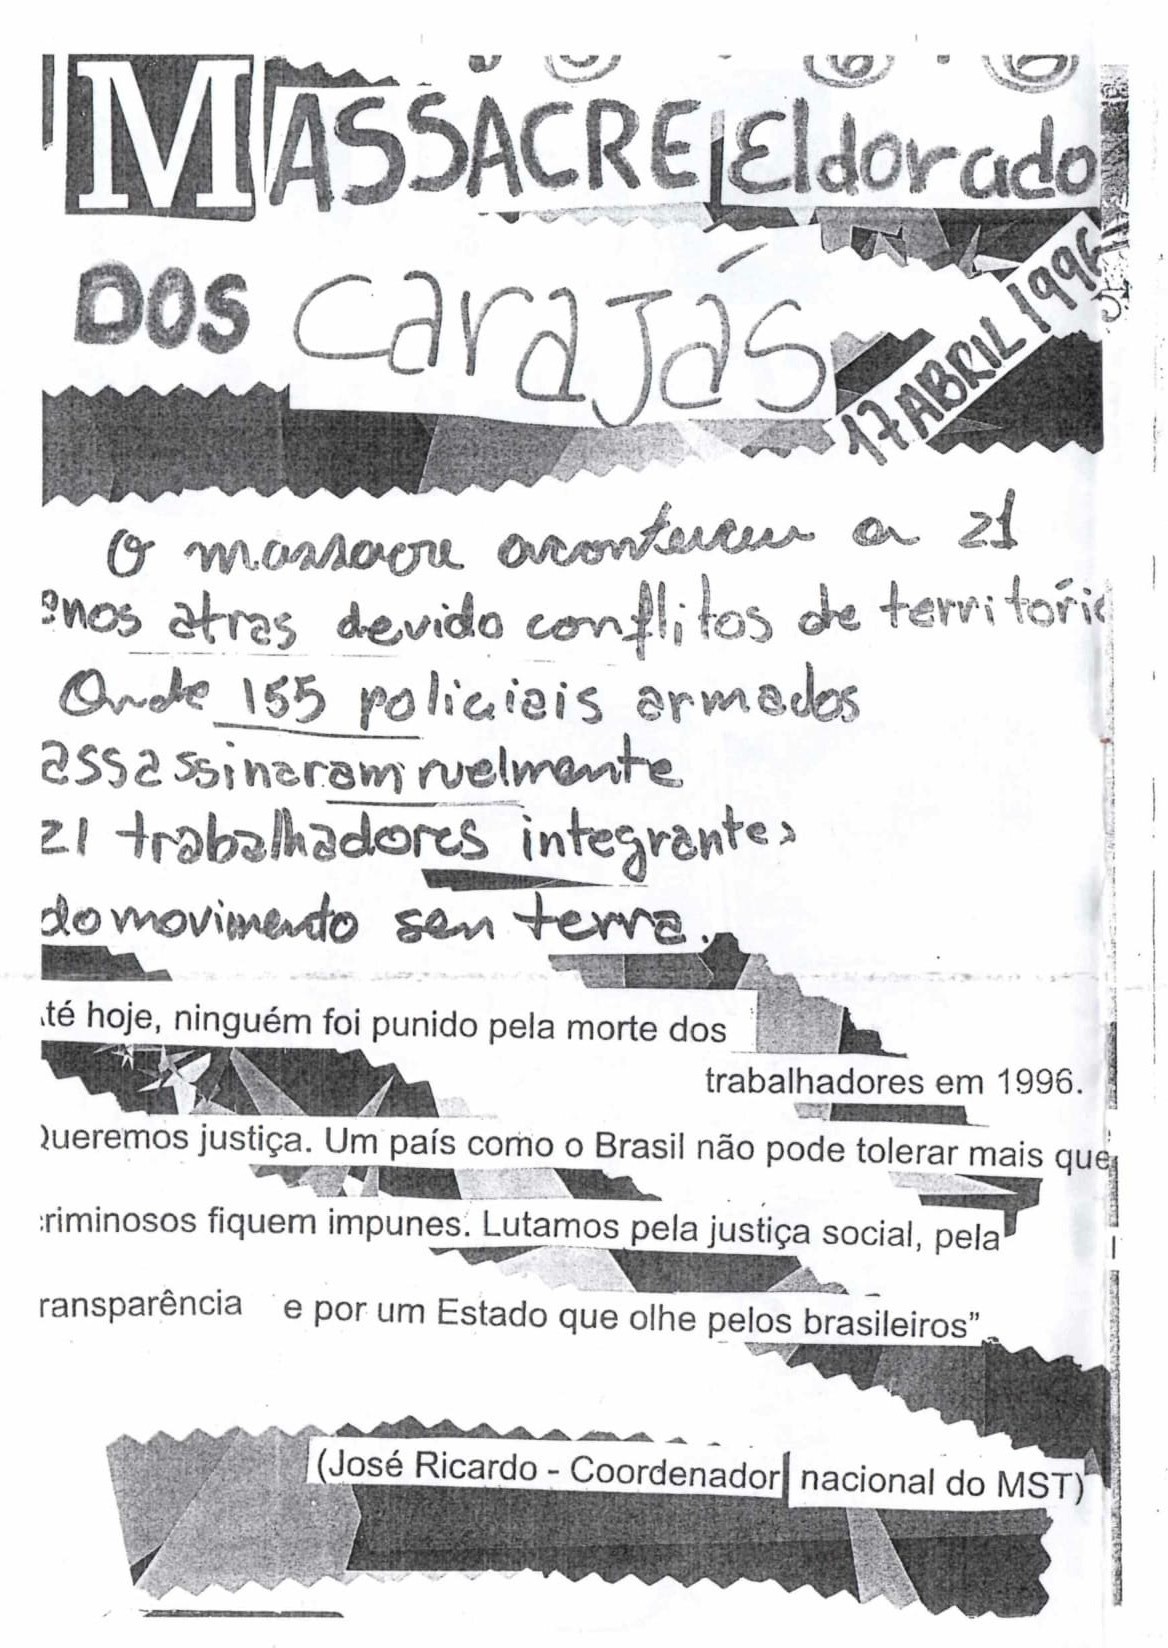 MASSACRE Eldorado
DOS Carajás
17 ABRIL 1996
O massacre aconteceu a 21
anos atras devido conflitos de território
Onde 155 policiais armados
assassinaram ruelmente
21 trabalhadores integrantes
do movimento sem terra.
té hoje, ninguém foi punido pela morte dos
trabalhadores em 1996.
Queremos justiça. Um país como o Brasil não pode tolerar mais que
riminosos fiquem impunes. Lutamos pela justiça social, pela
ransparência e por um Estado que olhe pelos brasileiros”
(José Ricardo - Coordenador nacional do MST)